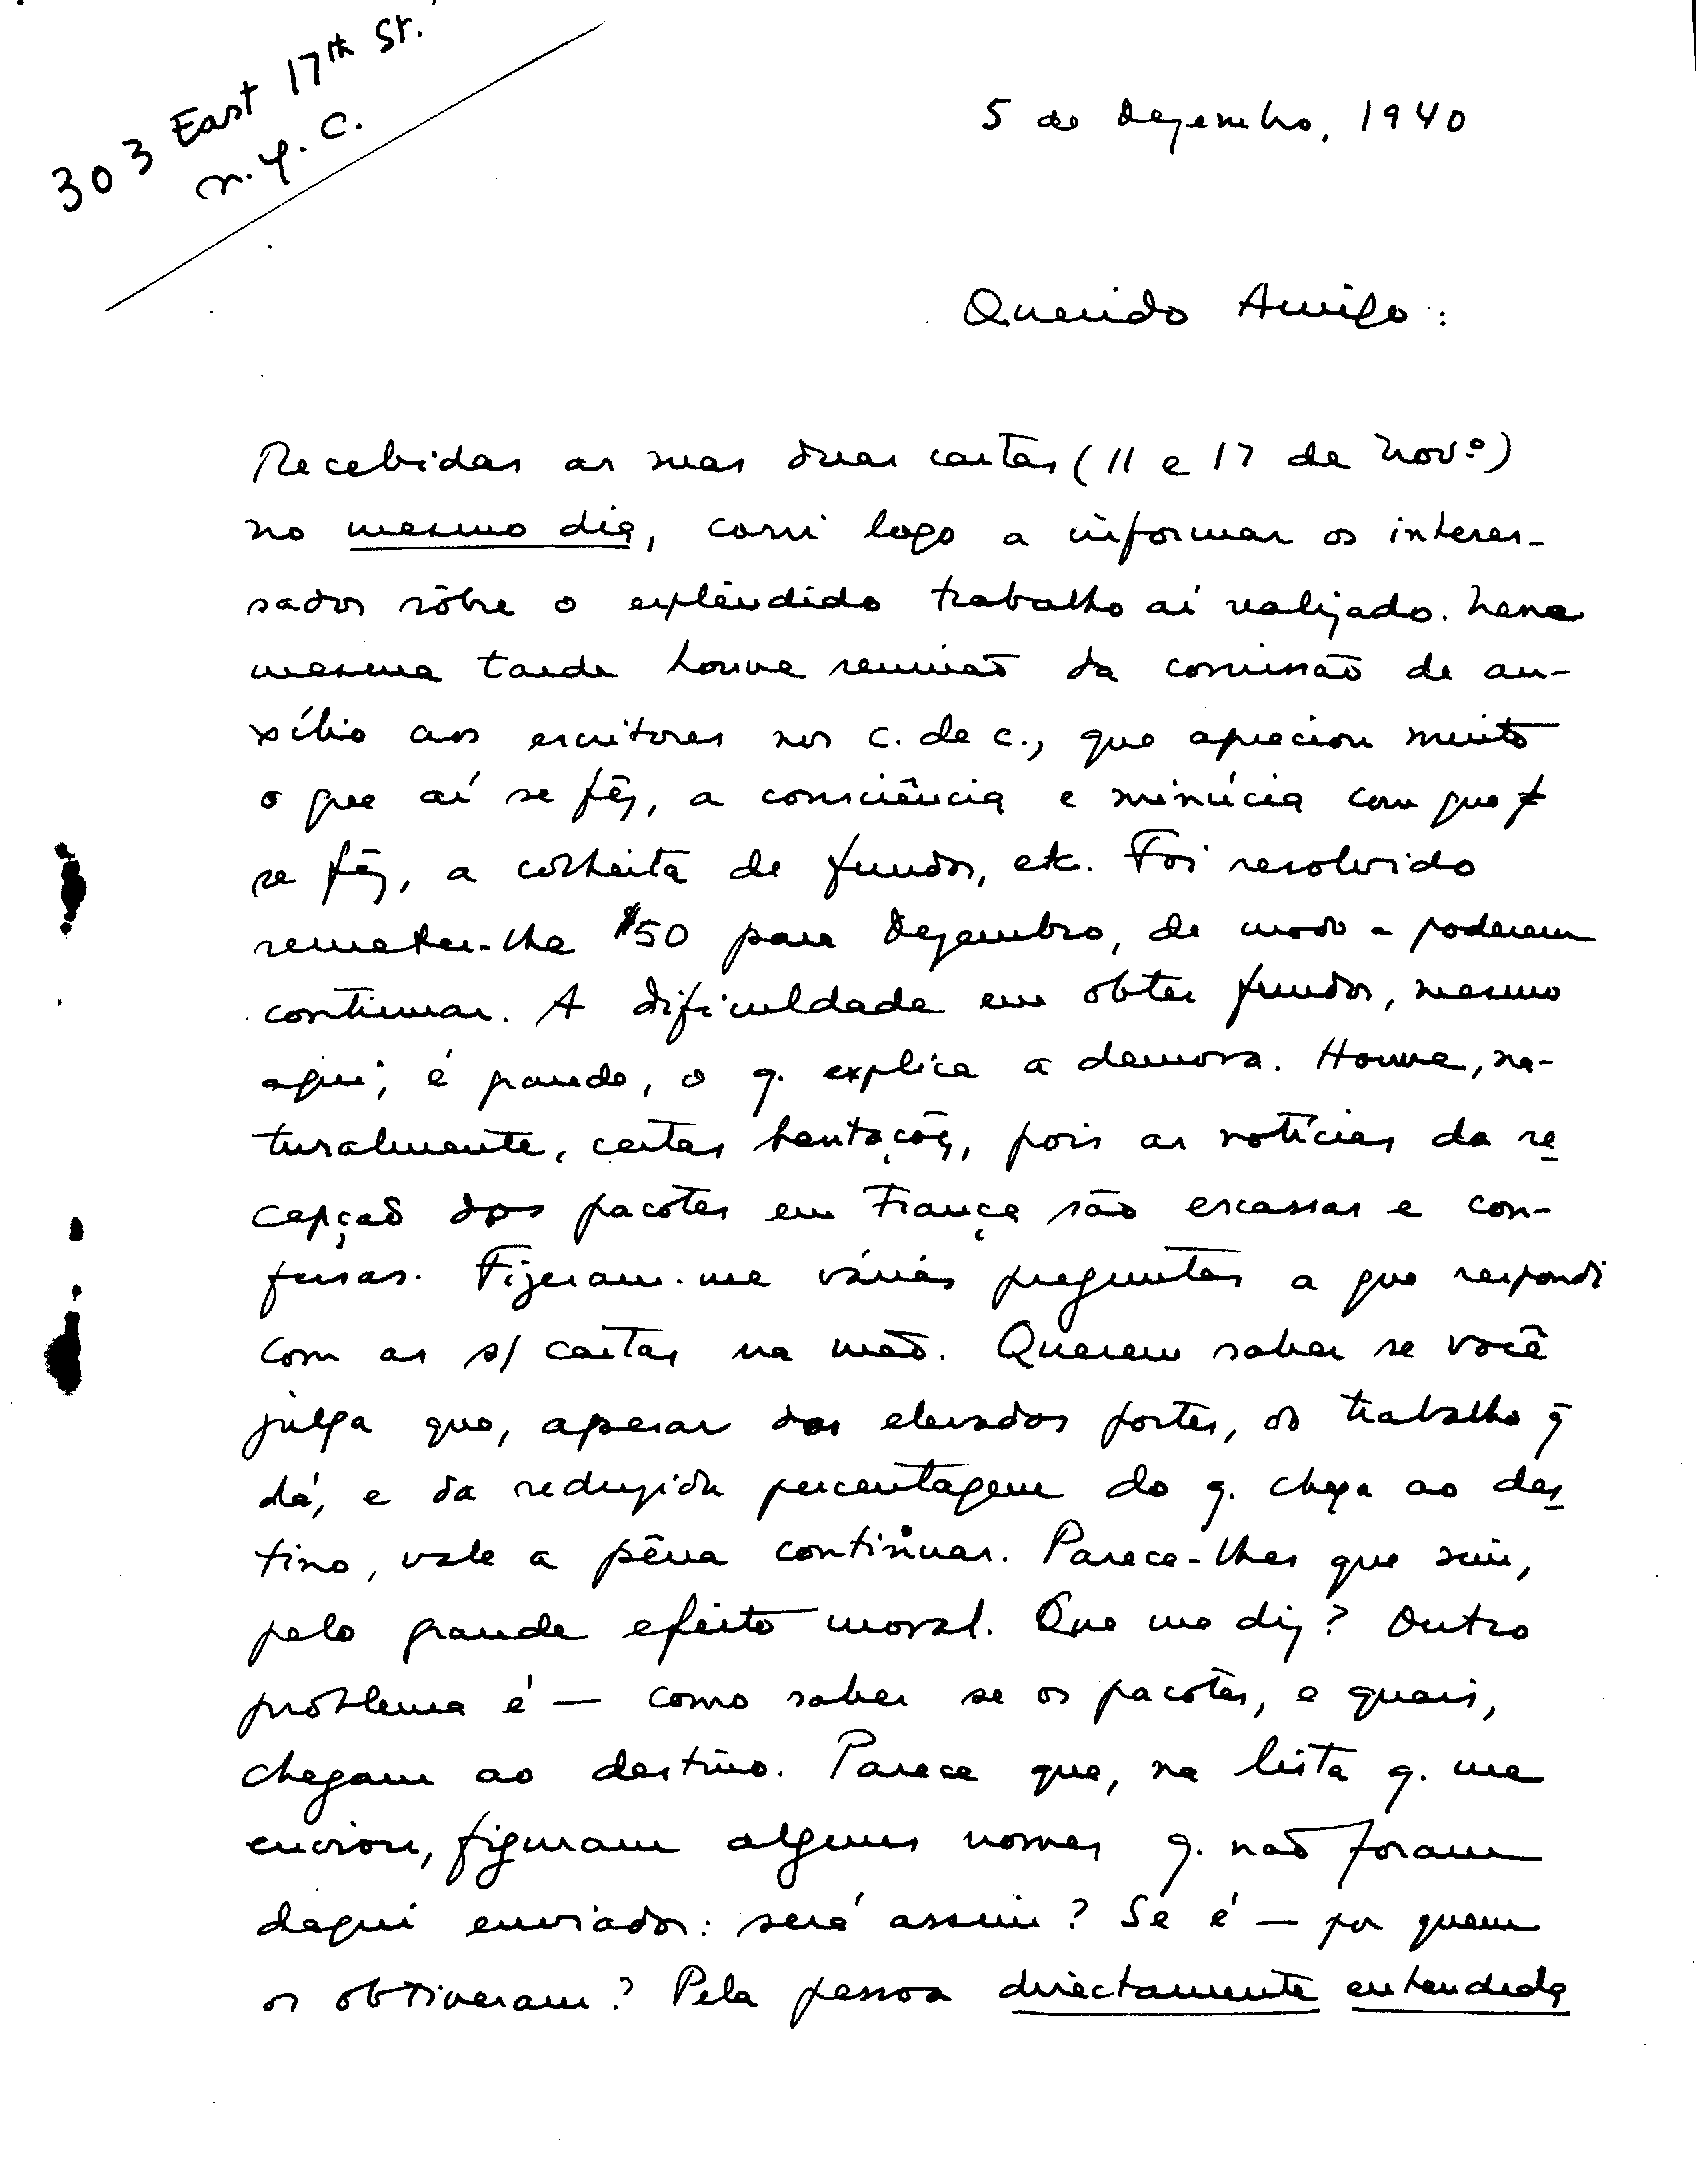 303 East 17th St.
N.Y.C.
5 de Dezembro, 1940
Querido Amigo:
Recebidas as suas duas cartas (11 e 17 de Novº)
no mesmo dia, corri logo a informar os interes-
sados sôbre o esplêndido trabalho aí realizado. Nessa
mesma tarde houve reunião da comissão de au-
xílio aos escritores nos c. de c., que apreciou muito
o que aí se fêz, a consciência e minúcia com que
se fêz, a colheita de fundos, etc. Foi resolvido
remeter-lhe $50 para Dezembro, de modo a poderem
continuar. A dificuldade em obter fundos, mesmo
aqui, é grande, o q. explica a demora. Houve, na-
turalmente, certas hesitações, pois as notícias da re
cepção dos pacotes em França são escassas e con-
fusas. Fizeram-me várias preguntas a que respondi
com as s/ cartas na mão. Querem saber se você
julga que, apesar dos elevados portes, do trabalho q̄
dá, e da reduzida percentagem do q. chega ao des
tino, vale a pêna continuar. Parece-lhes que sim,
pelo grande efeito moral. Que me diz? Outro
problema é — como saber se os pacotes, e quais,
chegam ao destino. Parece que, na lista q. me
enviou, figuram alguns nomes q. não foram
daqui enviados: será assim? Se é — por quem
os obtiveram? Pela pessoa directamente entendida